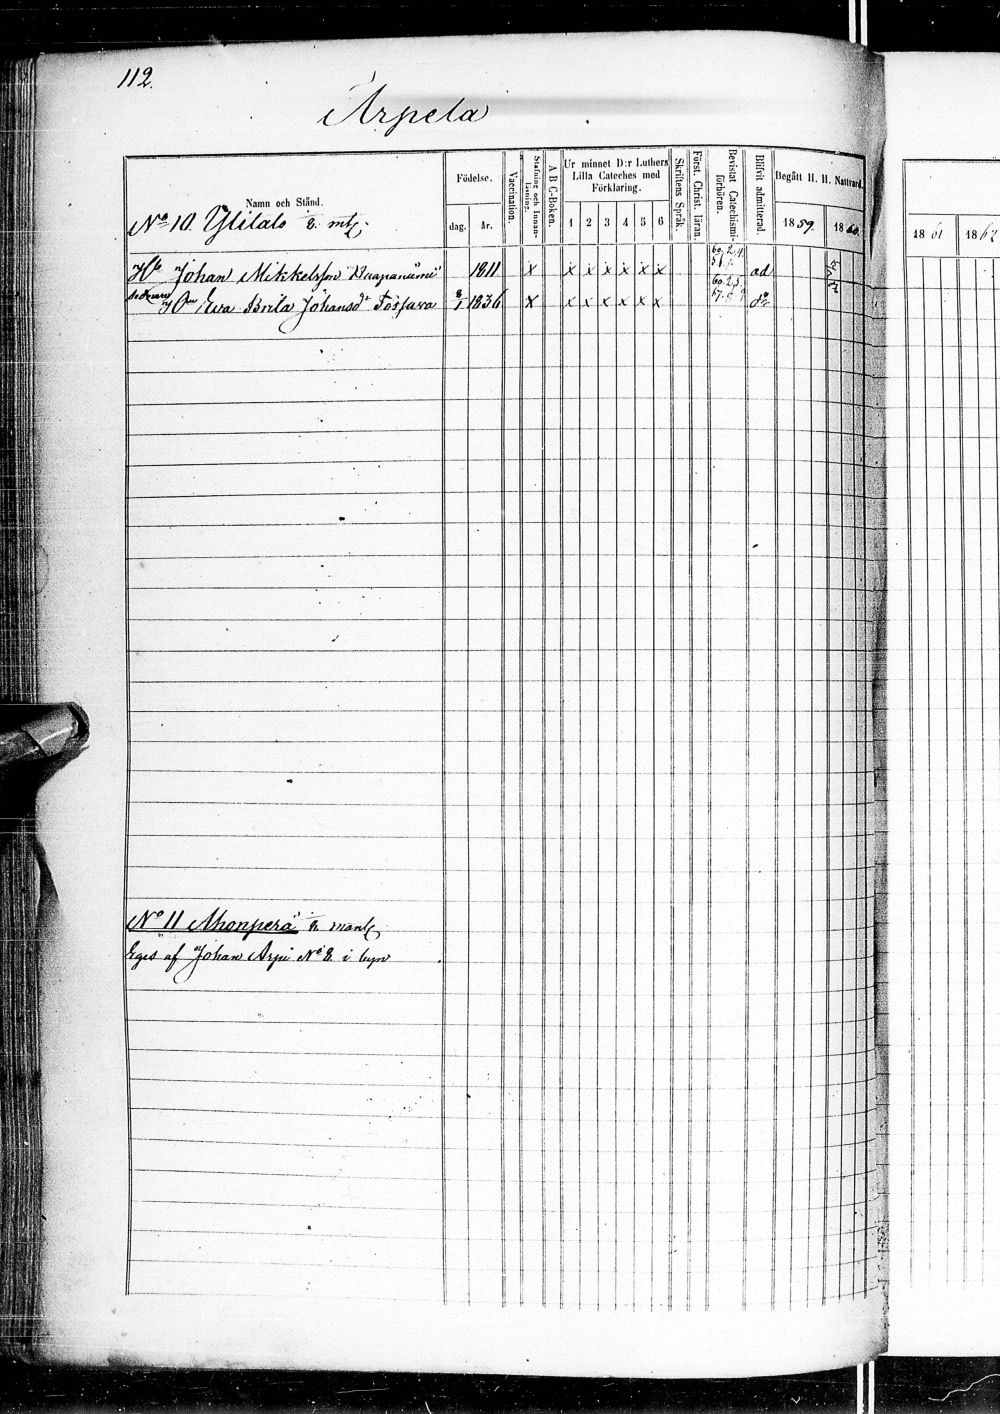 112.
Arpela
Namn och Stånd.
Födelse.
dag.
år.
Vaccination.
Stafning och Innan-läsning.
A B C-Boken.
Ur minnet D:r Luthers
Lilla Cateches med
Förklaring.
1 2 3 4 5 6
Skriftens Språk.
Först. Christ. läran.
Bevistat Catechismi-förhören.
Blifvit admitterad.
Begått H. H. Nattvard.
1859. 1860.
1861 1862
No 10. Ylitalo mtl.
Hb Johan Mikkelsson 1811 x x x x x x x ad
Eva Brita Johansdr 1836 x x x x x x x do
No 11 Ahonperä mantl
Eges af Johan Arpi No 8 i byn